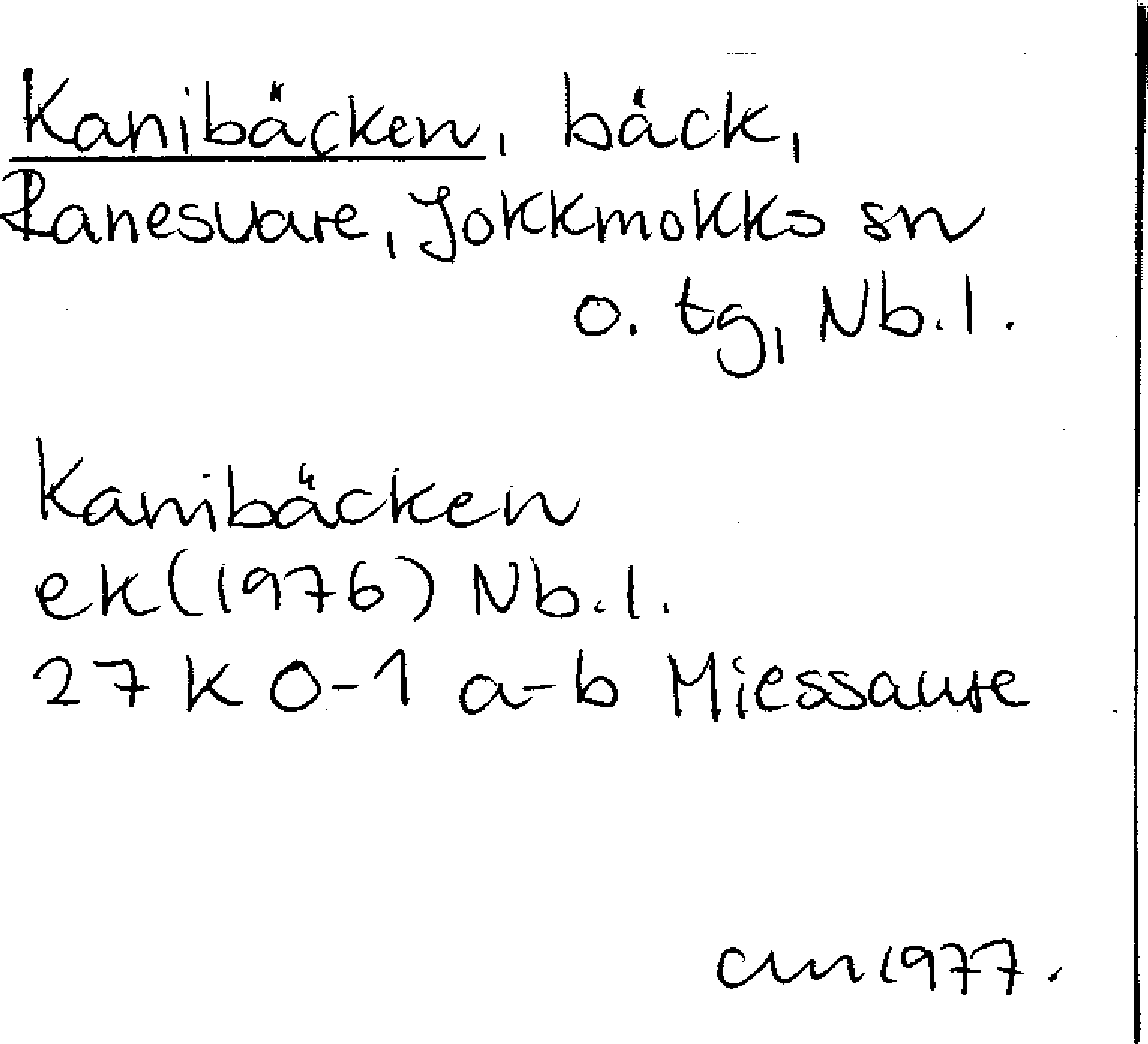 Kanibäcken, bäck,
Ranesvare, Jokkmokks sn
o. tg, Nb.l.
Kanibäcken
ek (1976) Nb.l.
27 K 0-1 a-b Miessaure
cm 1977.